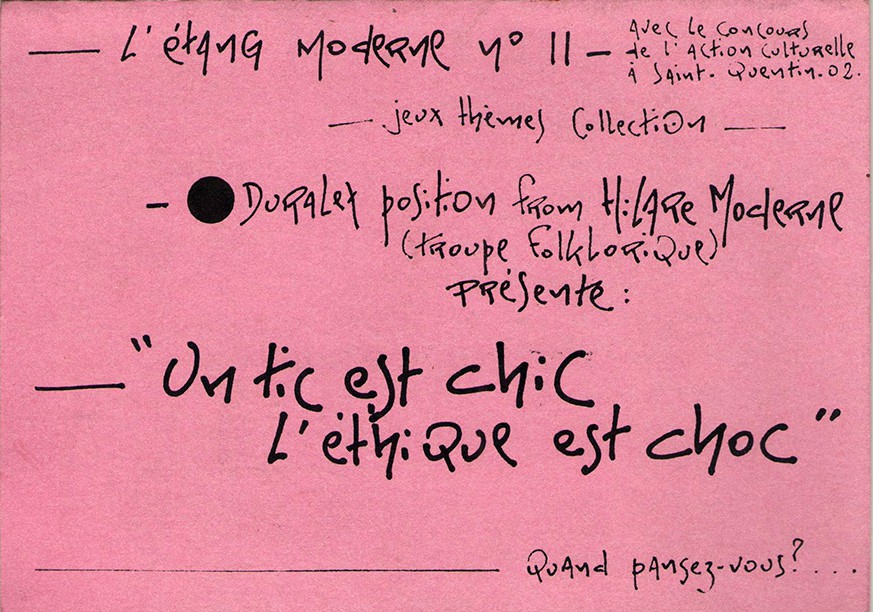 — L'étang Moderne n° 11 –
Avec le concours
de l'Action Culturelle
à Saint-Quentin.02.
— jeux thèmes Collection —
– ● Duralex position from Hilare Moderne
(troupe folklorique)
présente :
— "Un tic est chic
L'éthique est choc"
Quand pansez-vous?...